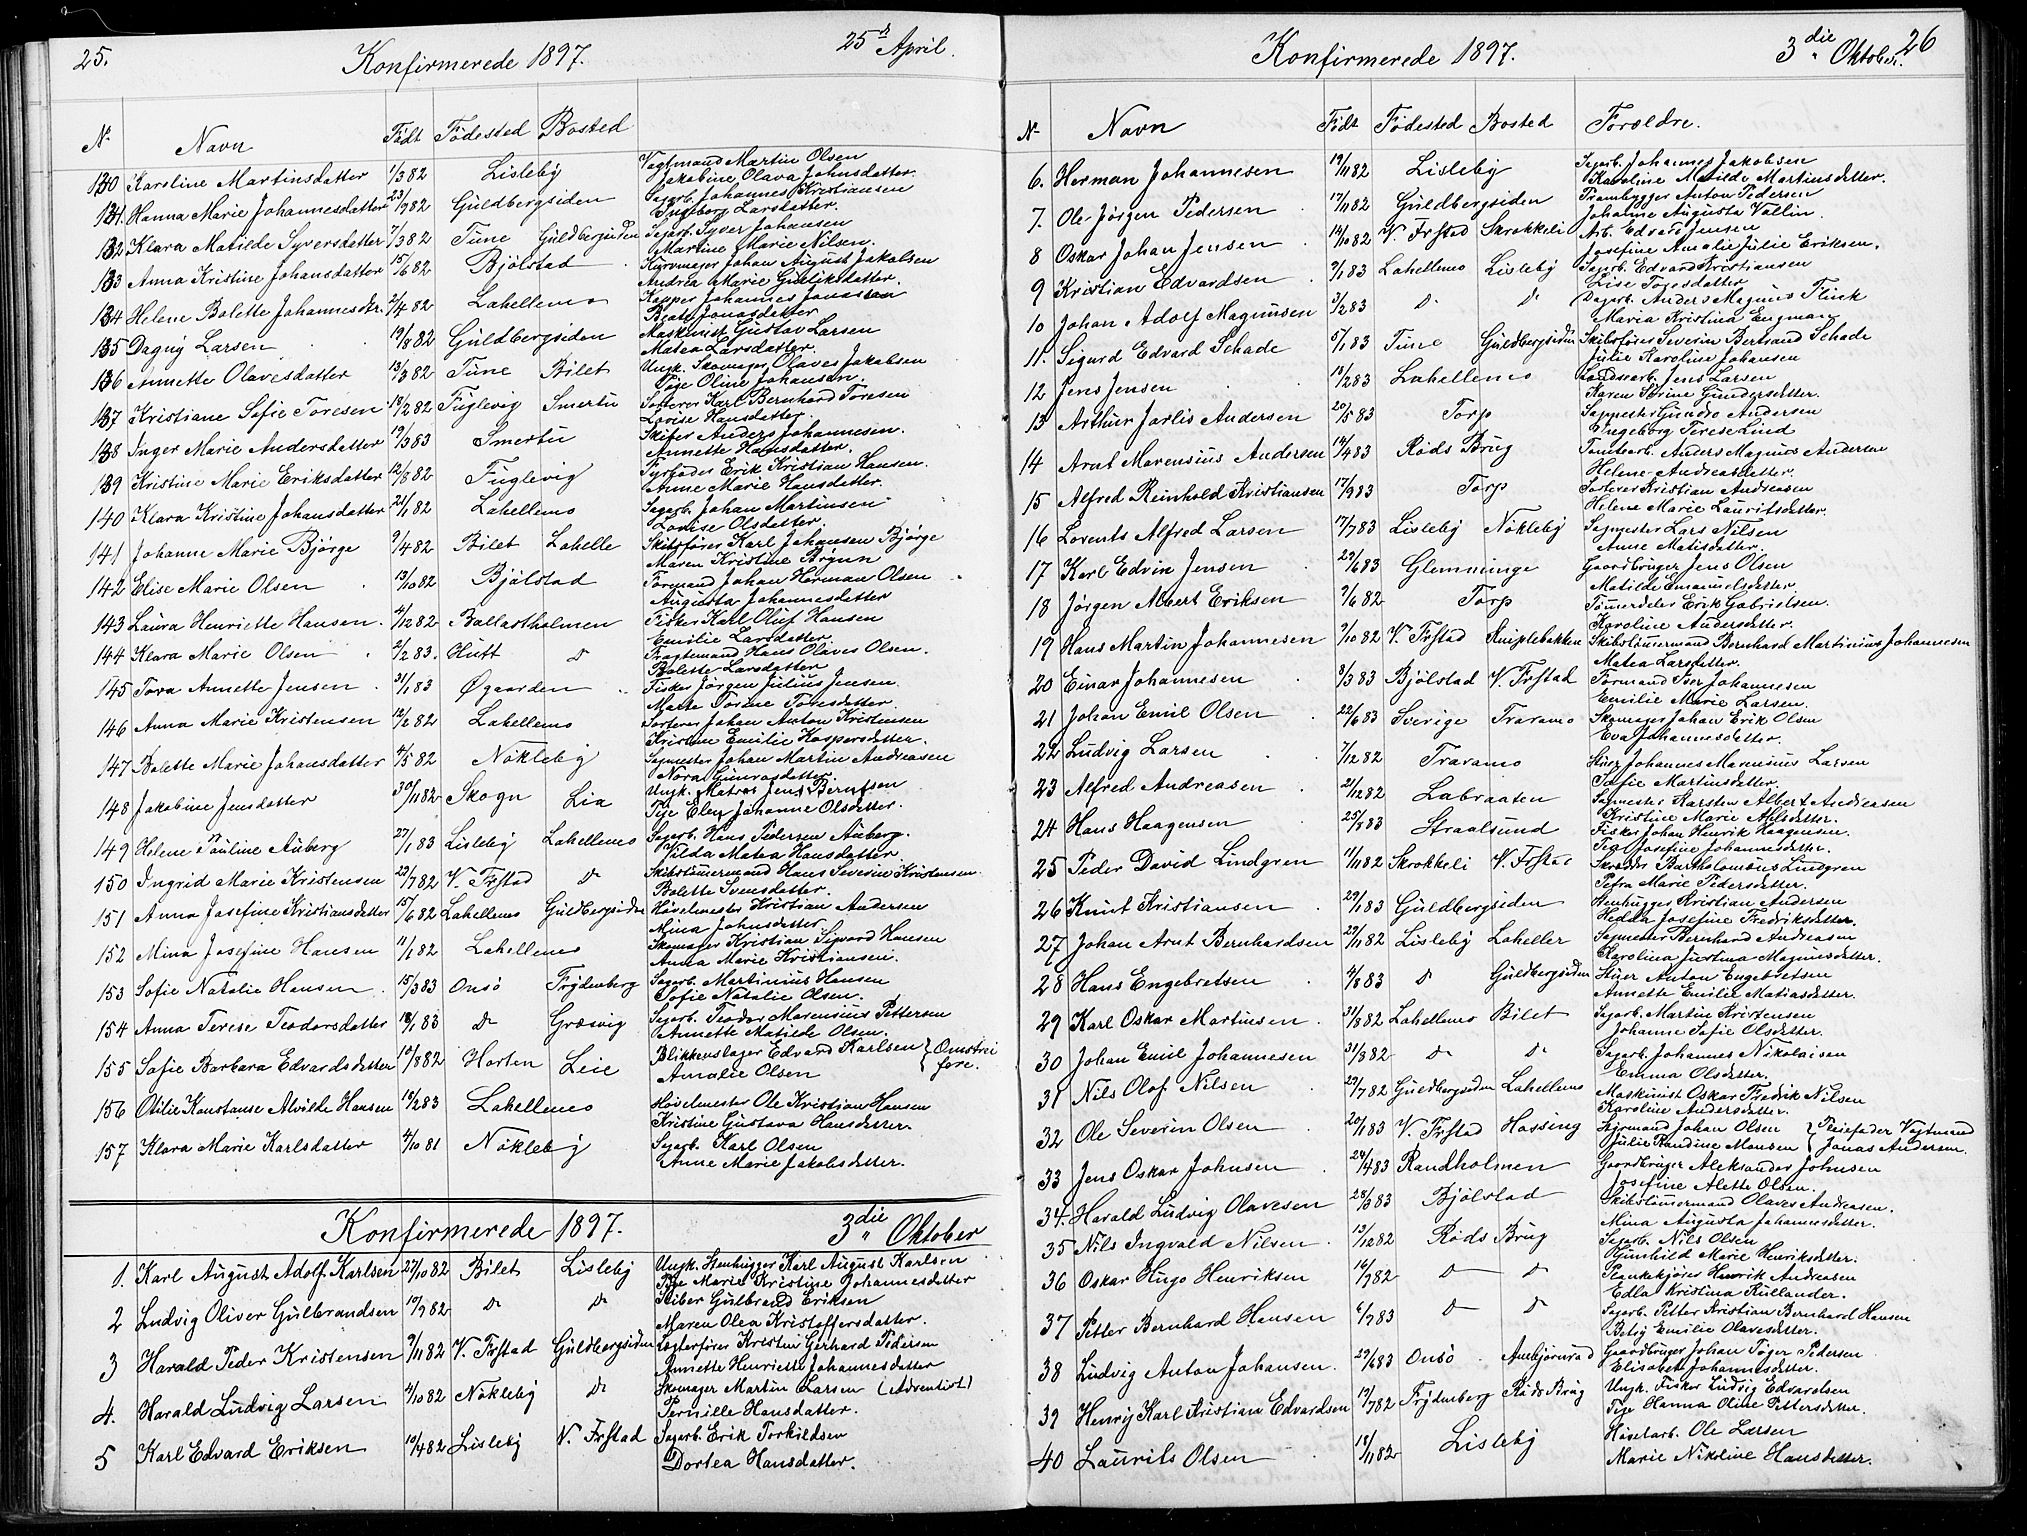 25.
Konfirmerede 1897.
25d April.
No Navn Født Fødested Bosted
130 Karoline Martinsdatter 1/3 82 Lisleby Vagtmand Martin Olsen
Jakobine Olava Johnsdatter
131. Hanna Marie Johannesdatter 23/9 82 Guldbergsiden Sagarb. Johannes Kristiansen
Ingeborg Larsdatter.
132 Klara Matilde Syversdatter 7/3 82 Tune Guldbergsiden Sagarb. Syver Johansen
Martine Marie Nilsen.
133 Anna Kristine Johansdatter 15/6 82 Bjölstad Kurvmager Johan August Jakobsen
Andrea Marie Guliksdatter.
134 Helene Bolette Johannesdtr. 2/4 82 Lahellemo Kapper Johannes Jonassen
Beate Jonasdatter
135 Dagny Larsen 19/8 82 Guldbergsiden Maskinist Gustav Larsen
Matea Larsdatter.
136 Annette Olavesdatter 13/3 82 Tune Bilet Ungk. Skomager Olaves Jakobsen
Pige Oline Johansen.
137 Kristiane Sofie Toresen 18/2 82 Fuglevig Smertu Sorterer Karl Bernhard Toresen
Lovise Hansdatter.
138 Inger Marie Andersdatter 19/3 83 Smertu Skifer Anders Johannesen.
Annette Hansdatter.
139 Kristine Marie Eriksdatter 12/8 82 Fuglevig Fyrbøder Erik Kristian Hansen.
Anne Marie Hansdatter.
140 Klara Kristine Johansdatter 24/1 82 Lahellemo Sagarb. Johan Martinsen
Lovise Olsdatter.
141 Johanne Marie Bjørge 9/4 82 Bilet Lahelle Skibsfører Karl Johansen Bjørge
Maren Kristine Brynn
142 Elise Marie Olsen 13/10 82 Bjölstad Formand Johan Herman Olsen
Augusta Johannesdatter
143 Laura Henriette Hansen 4/12 82 Ballastholmen Fisker Karl Oluf Hansen
Emilie Larsdatter.
144 Klara Marie Olsen 2/2 83. Huft do Fragtemand Hans Olaves Olsen.
Bolette Larsdatter
145 Tova Annette Jensen 31/1 83 Øgaarden Fisker Jørgen Julius Jensen
Marte Torine Tobesdatter
146 Anna Marie Kristensen 12/2 82 Lahellemo Sorterer Johan Anton Kristensen
Kristine Emilie Kaspersdatter.
147 Bolette Marie Johansdatter 4/5 82 Nökleby Sagmester Johan Martin Andreasen
Nora Gunrosdatter.
148 Jakobine Jensdatter 30/11 82 Skogn Lia Ungk. Matros Jens Berntsen
Pige Elen Johanne Olsdatter.
149 Helene Pauline Auberg 27/1 83 Lisleby Lahellemo Sagarb. Hans Pedersen Auberg.
Vilda Matea Hansdatter
150 Ingrid Marie Kristensen 22/7 82 V. Frstad do Skibstömermand Hans Severin Kristensen.
Bolette Svensdatter.
151 Anna Josefine Kristiansdatter 15/6 82 Lahellemo Guldbergsiden Høvelmester Kristian Andersen
Mina Johnsdatter
152 Mina Josefine Hansen 11/1 82 Lahellemo Skomager Kristian Sigvard Hansen
Anna Marie Kristiansen.
153 Sofie Natalie Hansen 15/3 83 Onsö Frydenberg Sagarb. Martinius Hansen
Sofie Natalie Olsen.
154 Anna Terese Teodorsdatter 18/1 83 do Græsvig Sagarb. Teodor Marensius Pettersen
Annette Matilde Olsen.
155 Sofie Barbara Edvardsdatter 12/8 82 Horten Leie Blikkenslager Edvard Karlsen } Omstrei
Amalie Olsen { fere.
156 Otilie Konstanse Alvilde Hansen 18/2 83 Lahellemo Høvelmester Ole Kristian Hansen
Kristine Gustava Hansdatter.
157 Klara Marie Karlsdatter 4/10 81 Nökleby Sagarb. Karl Olsen
Anne Marie Jakobsdatter.
Konfirmerede 1897. 3die Oktober
1. Karl August Adolf Karlsen 27/10 82 Bilet Lisleby Ungk. Stenhugger Karl August Karlsen
Pige Marie Kristine Johannesdatter
2 Ludvig Oliver Gulbrandsen 10/9 82 do do Stiber Gulbrand Eriksen
Maren Olea Kristoffersdatter.
3 Harald Peder Kristensen 9/11 82 V. Frstad Guldbergsiden Lægterfører Kristen Gerhard Pedersen
Annette Henriette Johannesdatter
4. Harald Ludvig Larsen 4/10 82 Nökleby do Skomager Martin Larsen (Adventist)
Pernille Hansdatter.
5 Karl Edvard Eriksen 10/4 82 Lisleby V. Frstad Sagarb. Erik Torkildsen
Dortea Hansdatter.
Konfirmerede 1897.
3die Oktober.
26
No Navn Født Fødested Bosted Forældre.
6. Herman Johannesen 19/11 82 Lisleby Sagarb. Johannes Jakobsen
Karoline Matilde Martinsdatter.
7. Ole Jörgen Pedersen 17/11 82 Guldbergsiden Prambygger Anton Pedersen
Johanne Augusta Vallin.
8 Oskar Johan Jensen 14/10 82 V. Frstad Skrokkeli Arb. Edvard Jensen
Josefine Amalie Julie Eriksen.
9 Kristian Edvardsen 9/1 83 Lahellemo Lisleby Sagarb. Edvard Kristiansen
Lise Togesdatter
10 Johan Adolf Magnusen 3/2 83 do do Sagarb. Anders Magnus Flink
Maria Kristina Engman
11. Sigurd Edvard Schade 5/1 83 Tune Guldbergsiden Skibsföres Severin Bertrand Schade
Julie Karoline Johansen
12 Jens Jensen 18/2 83 Lahellemo Landsarb. Jens Larsen
Karen Serine Gundersdatter.
13 Arthur Jarlis Andersen 20/5 83 Torp Sagmester Gundo Andersen
Ingeborg Terese Lind
14 Arnt Marensius Andersen 14/4 83 Røds Brug Tomtearb. Anders Magnus Andersen
Helene Andreasdatter.
15 Alfred Reinhold Kristiansen 17/9 83 Torp Sorterer Kristian Andreasen
Helene Marie Lauritsdatter.
16 Lorents Alfred Larsen 17/7 83 Lisleby Nökleby Sagmester Lars Nilsen
Anne Matisdatter.
17 Karl Edvin Jensen 29/6 83 Glemminge Gaardbruger Jens Olsen
Matilde Emanuelsdatter.
18 Jörgen Albert Eriksen 9/6 82 Torp Tömerdeler Erik Gabrielsen.
Karoline Andersdatter.
19 Hans Martin Johannesen 9/10 82 V. Frstad Kniplebakken Skibstömermand Bernhard Martinius Johannesen
Matea Larsdatter.
20 Einar Johannesen 8/3 83 Bjölstad V. Frstad Formand Iver Johannesen
Emilie Marie Larsen.
21 Johan Emil Olsen 22/6 83 Sverige Traramo Skomager Johan Erik Olsen
Eva Johannesdatter.
22 Ludvig Larsen 7/12 82 Traramo Stuer Johannes Marensius Larsen
Sofie Martinsdatter.
23 Alfred Andreasen 21/12 82 Labraaten Sagmester Karsten Albert Andreasen
Kristine Marie Nilsdatter.
24 Hans Haagensen 25/8 83 Straalsund Fisker Johan Henrik Haagensen.
Josefine Johannesdatter.
25 Peder David Lindgren 11/11 82 Skrokkeli V. Frstad Skrædder Bartholomæus Lindgren
Petra Marie Pedersdatter.
26 Knut Kristiansen 29/1 83 Guldbergsiden Stenhugger Kristian Andersen
Hedda Josefine Fredriksdatter.
27 Johan Arnt Bernhardsen 29/11 82 Lisleby Laheller Sagmester Bernhard Andreasen
Karolina Justina Magnusdatter.
28 Hans Engebretsen 4/8 83 do Guldbergsiden Stuer Anton Engebretsen
Annette Emilie Matiasdatter.
29 Karl Oskar Martinsen 31/8 82 Lahellemo Bilet Sagarb. Martin Kristensen
Johanne Sofie Olsdatter.
30 Johan Emil Johannesen 31/8 82 do do Sagarb. Johannes Nikolaisen
Emma Olsdatter.
31 Nils Olof Nilsen 29/7 82 Guldbergsiden Lahellemo Maskinist Oskar Fredrik Nilsen
Karoline Andersdatter.
32 Ole Severin Olsen 20/1 83 V. Frstad Hassing Styrmand Johan Olsen } Pleiefader Vagtmand
Julie Randine Monsen } Jonas Andersen.
33 Jens Oskar Johnsen 24/4 83 Randholmen Gaardbruger Aleksander Johnsen
Josefine Alette Olsen.
34. Harald Ludvig Olavesen 28/3 83 Bjölstad Skibstömermand Olaves Andreasen.
Mina Augusta Johannesdatter.
35 Nils Ingvald Nilsen 13/12 82 Røds Brug Sagarb. Nils Olsen
Gunhild Marie Henriksdatter.
36 Oskar Hugo Henriksen 16/9 82 do do Plankekjörer Henrik Andreasen
Edla Kristina Kullander.
37 Petter Bernhard Hansen 6/9 83 do do Sagarb. Petter Kristian Bernhard Hansen
Betsy Emilie Olavesdatter.
38 Ludvig Anton Johansen. 29/6 83 Onsö Ambjörnrød Gaardbruger Johan Töger Pedersen
Elisabet Johannesdatter.
39 Henry Karl Kristian Edvardsen 19/7 82 Frydenberg Røds Brug Ungk. Fisker Ludvig Edvardsen
Pige Hanna Oline Pettersdatter.
40 Laurits Olsen 18/11 82 Lisleby Høvelarb. Ole Larsen
Marie Nikoline Hansdatter.